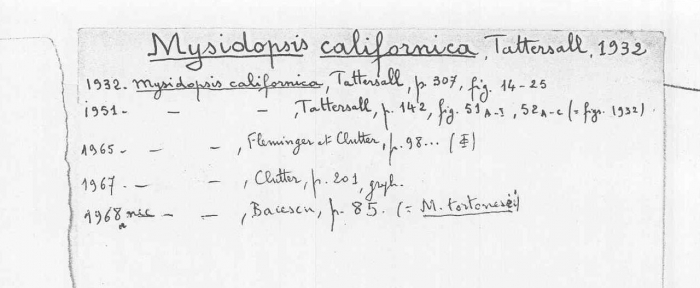 Mysidopsis californica, Tattersall, 1932
1932. Mysidopsis californica, Tattersall, p. 307, fig. 14-25
1951- — — , Tattersall, p. 142, fig. 51 A-I, 52 A-C (= figs 1932).
1965- — — , Fleminger et Clutter, p. 98... (Φ)
1967. - — — , Clutter, p. 201, graph.
1968a nsc - — , Bacescu, p. 85. (= M. tortonesei)